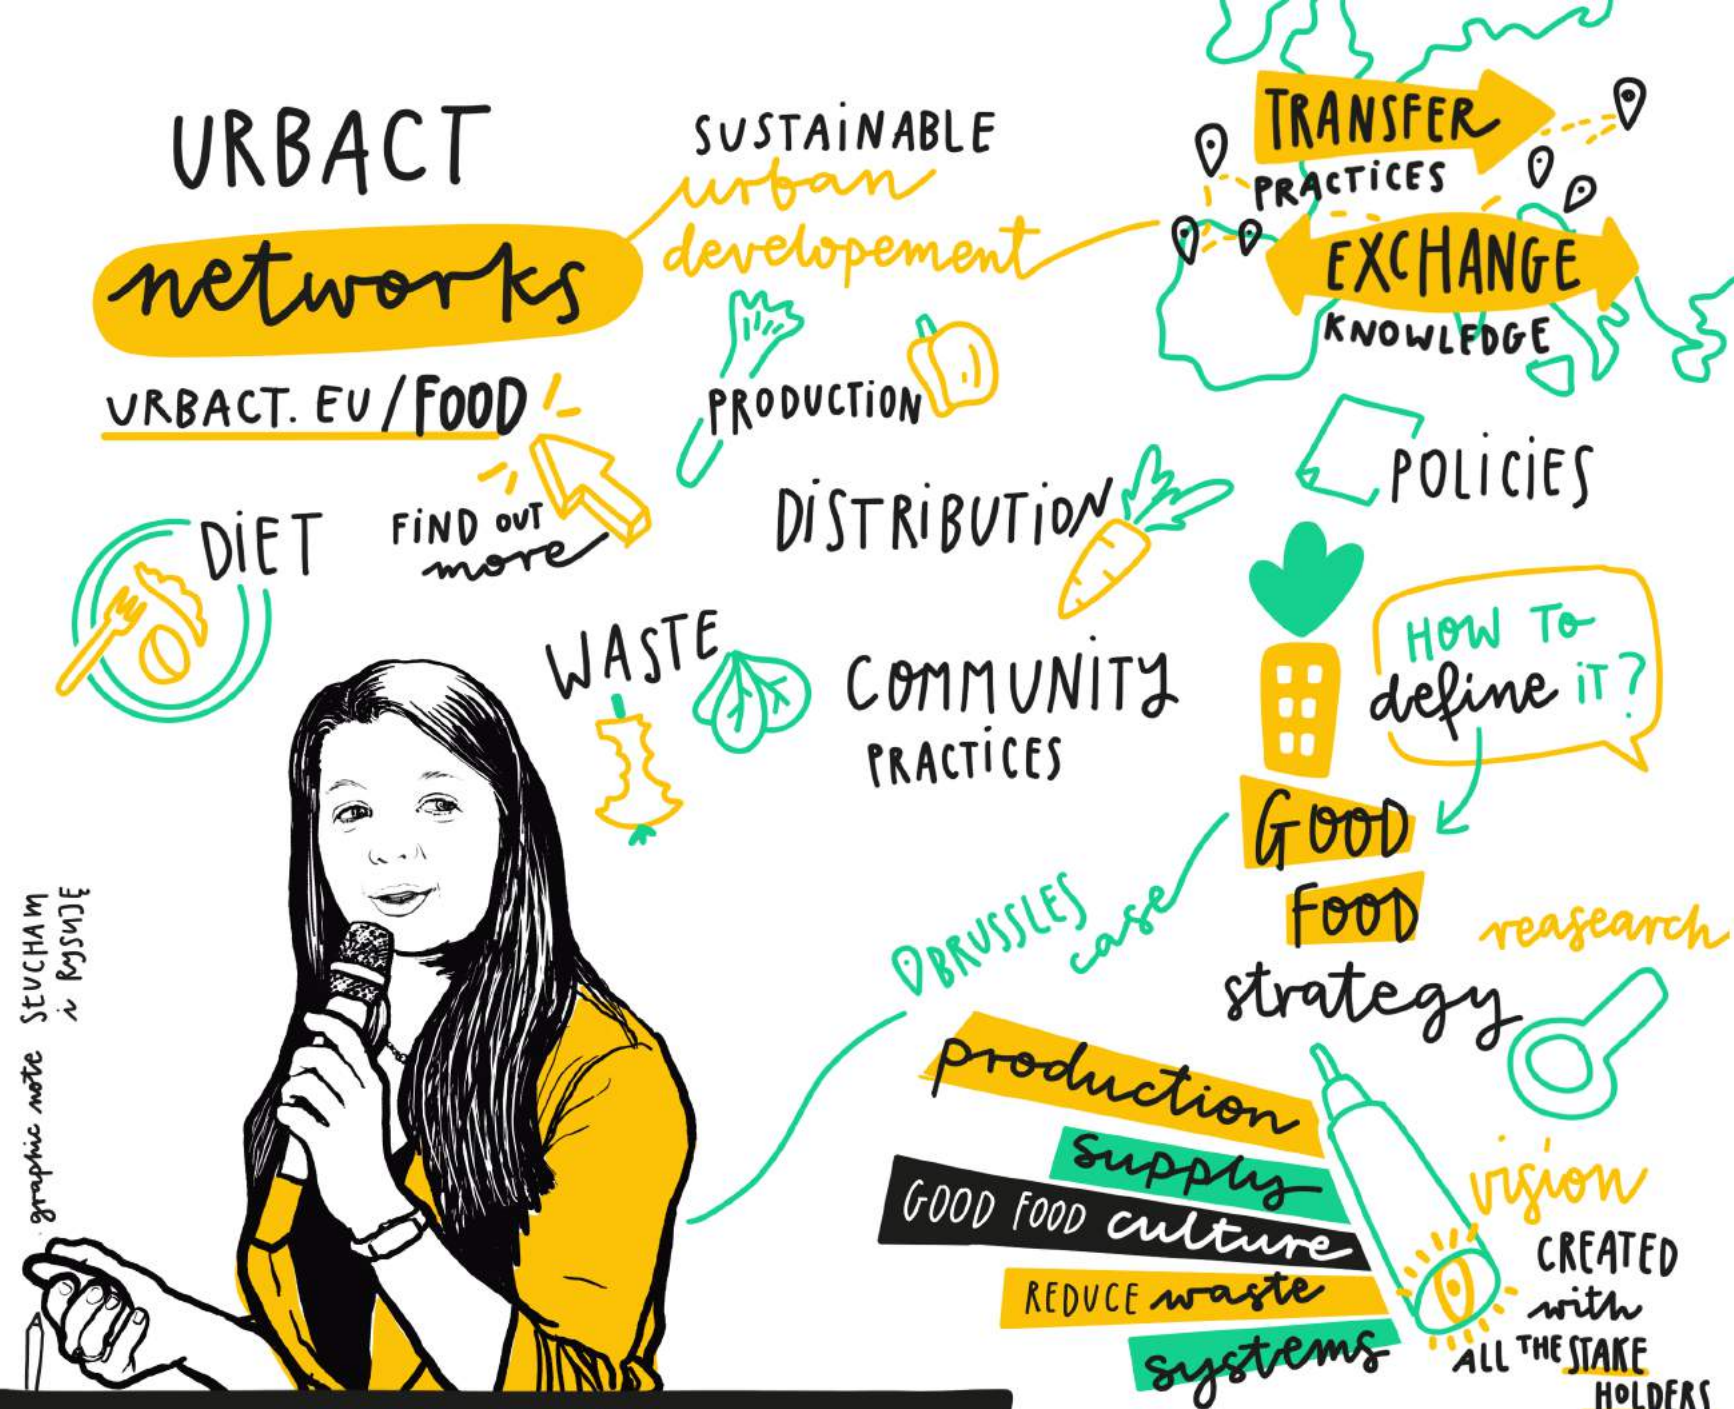 URBACT
networks
URBACT.EU/FOOD
FIND OUT
more
SUSTAINABLE
urban
developement
TRANSFER
PRACTICES
EXCHANGE
KNOWLEDGE
PRODUCTION
DISTRIBUTION
POLICIES
DIET
WASTE
COMMUNITY
PRACTICES
HOW TO
define IT?
GOOD
FOOD
strategy
BRUSSLES
case
reasearch
production
supply
GOOD FOOD culture
REDUCE waste
systems
vision
CREATED
with
ALL THE STAKE
HOLDERS
graphic note SŁUCHAM
i RYSUJĘ